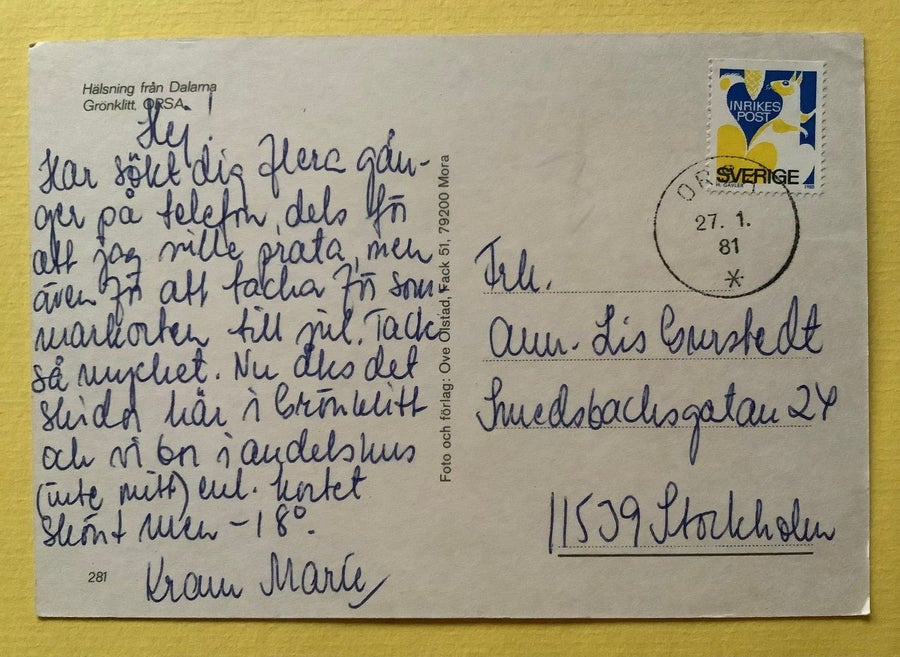 Hälsning från Dalarna
Grönklitt, ORSA
Hej!
Har sökt dig flera gån-
ger på telefon, dels för
att jag ville prata, men
även för att tacka för som
markorten till jul. Tack
så mycket. Nu åks det
skidor här i Grönklitt
och vi bor i andelshus
(inte mitt) enl. kortet
skönt men -18°.
Kram Marie
281
Foto och förlag: Ove Olstad, Fack 51, 79200 Mora
INRIKES
POST
SVERIGE
H. GAVLER 1980
ORSA
27. 1.
81
Frk.
Ann-Lis Gurstedt
Smedsbacksgatan 24
11539 Stockholm